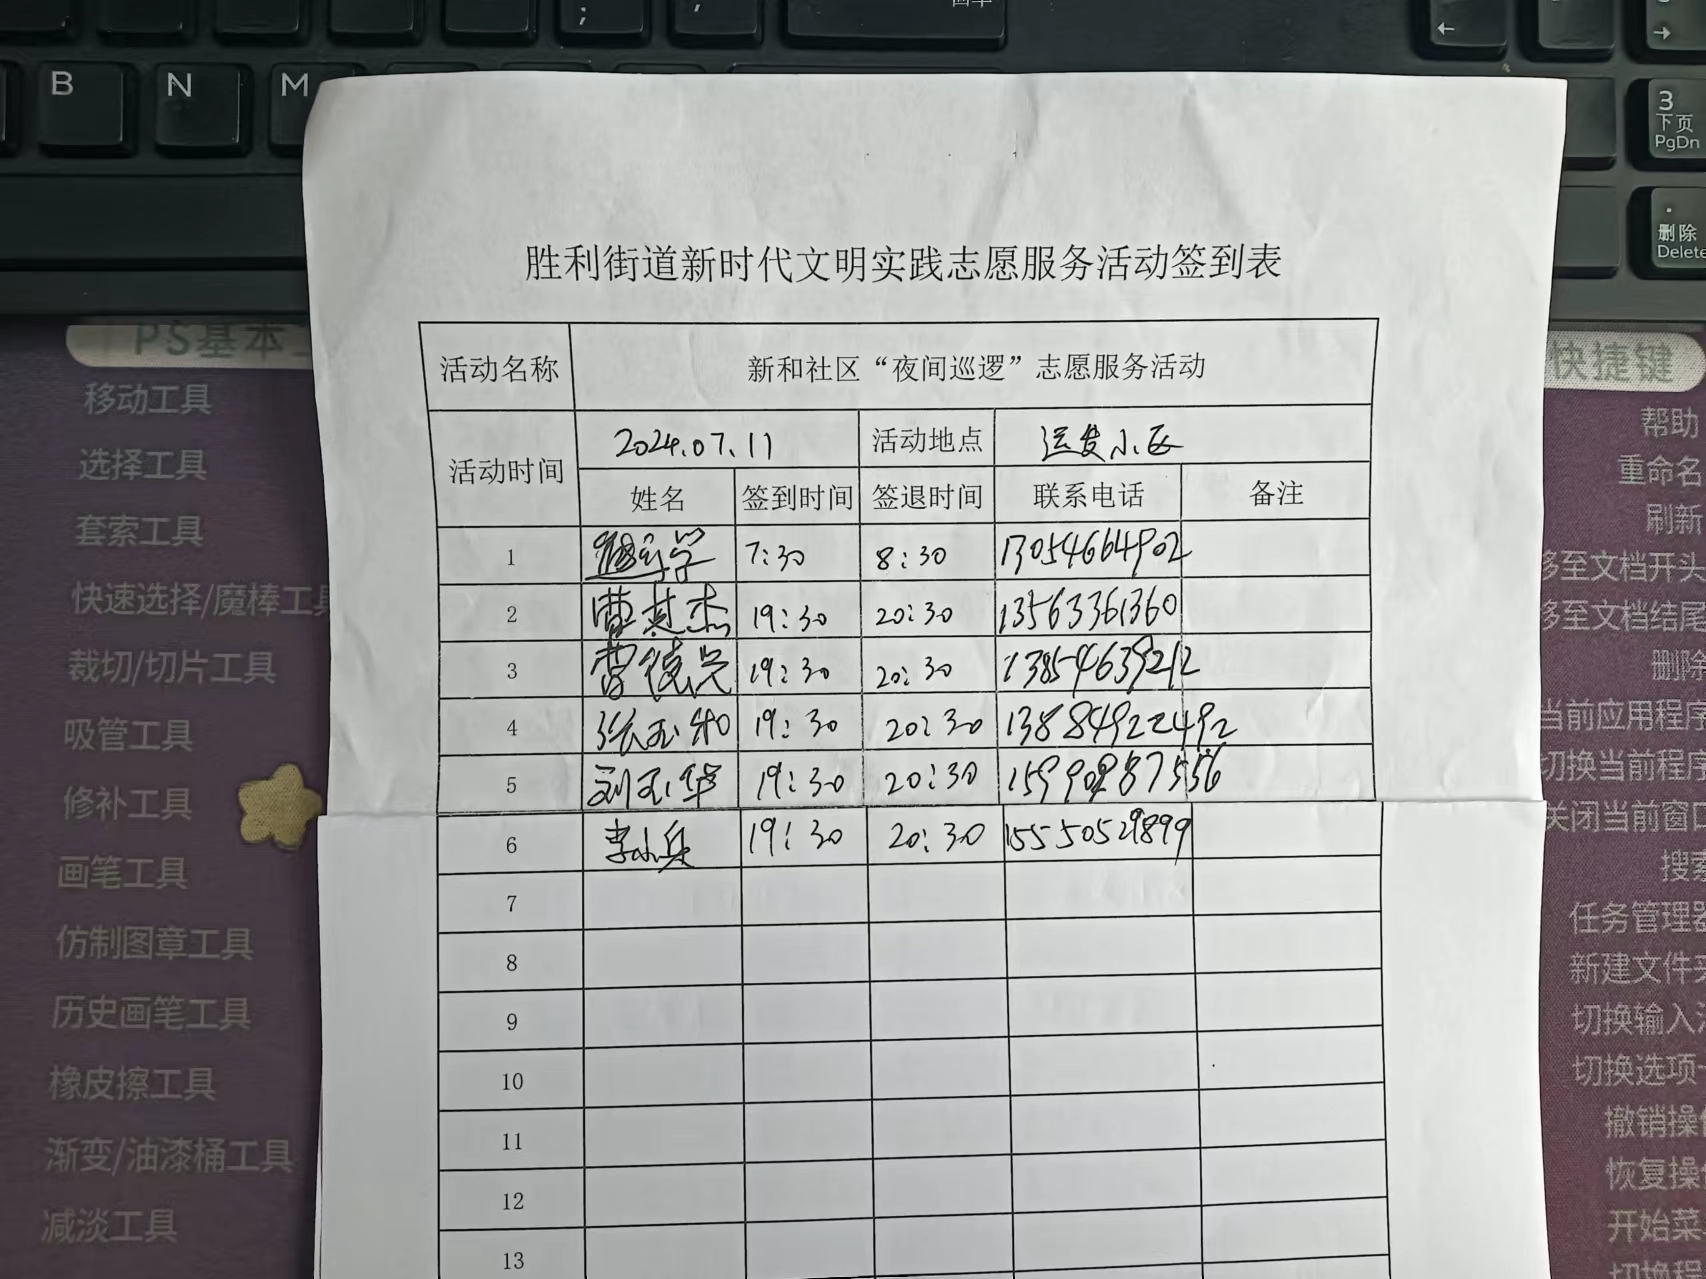 B N M
;
3
下页
PgDn
.
删除
Delete
PS基本工
移动工具
选择工具
套索工具
快速选择/魔棒工具
裁切/切片工具
吸管工具
修补工具
画笔工具
仿制图章工具
历史画笔工具
橡皮擦工具
渐变/油漆桶工具
减淡工具
胜利街道新时代文明实践志愿服务活动签到表
活动名称 新和社区“夜间巡逻”志愿服务活动
活动时间 2024.07.11 活动地点 运发小区
姓名 签到时间 签退时间 联系电话 备注
1 7:30 8:30 13054664902
2 曹其杰 19:30 20:30 13563361360
3 曹德兴 19:30 20:30 13854639212
4 张玉和 19:30 20:30 13884922492
5 刘玉华 19:30 20:30
6 李小兵 19:30 20:30 15550529899
7
8
9
10
11
12
13
快捷键
帮助
重命名
刷新
移至文档开头
移至文档结尾
删除
当前应用程序
切换当前程序
关闭当前窗口
搜索
任务管理器
新建文件夹
切换输入法
切换选项
撤销操作
恢复操作
开始菜
切换程